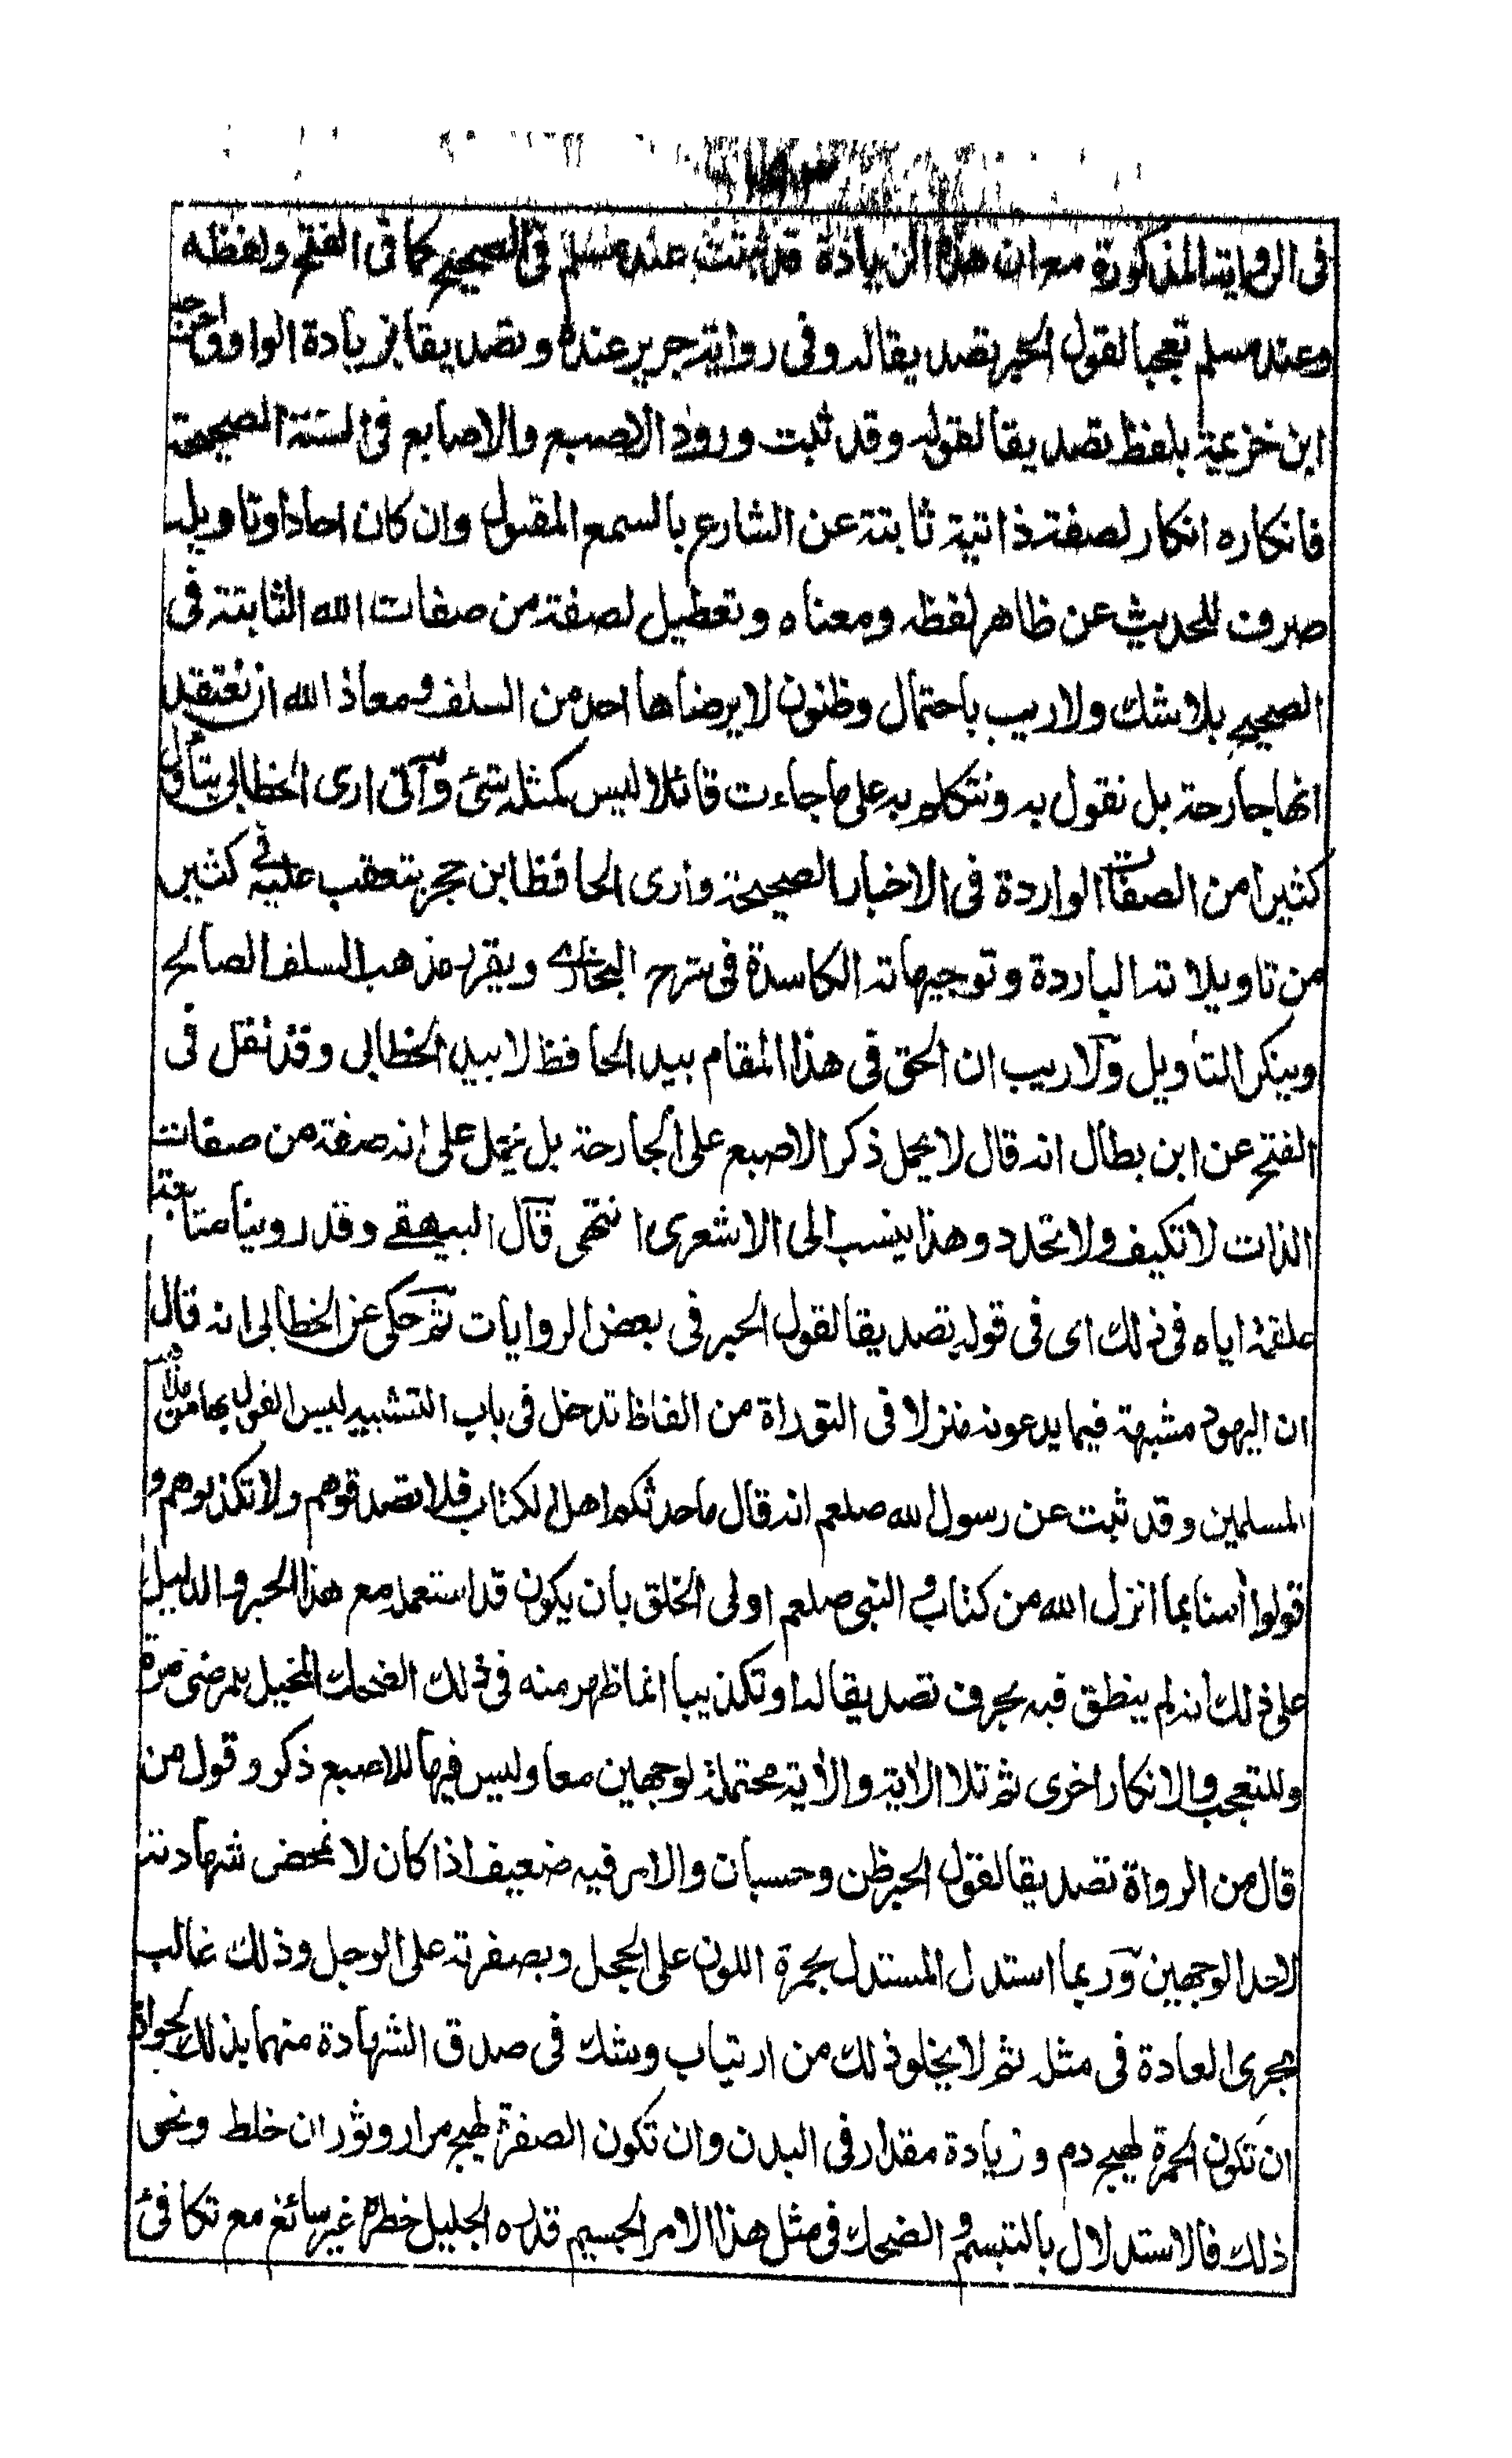 فى الرواية المذكورة مع ان هذه الزيادة قد ثبتت عند مسلم فى الصحيح كما فى الفتح ولفظه
وعند مسلم تعجبا لقول الحبر تصديقا له وفى رواية جرير عنده وتصديقا بزيادة الواو واخرجه
ابن خزيمة بلفظ تصديقا لقوله وقد ثبت ورود الاصبع والاصابع فى السنة الصحيحة
فانكاره انكار لصفة ذاتية ثابتة عن الشارع بالسمع المقبول وان كان احادا وتاويله
صرف للحديث عن ظاهر لفظه ومعناه وتعطيل لصفة من صفات الله الثابتة فى
الصحيح بلا شك ولا ريب باحتمال وظنون لا يرضاها احد من السلف ومعاذ الله ان نعتقد
انها جارحة بل نقول به ونتكلم به على ما جاءت قائلا ليس كمثله شئ وآنى ارى الخطابى يتأول
كثيرا من الصفات الواردة فى الاخبار الصحيحة وارى الحافظ ابن حجر يتعقب عليه فى كثير
من تاويلاته الباردة وتوجيهاته الكاسدة فى شرح البخارى ويقرر مذهب السلف الصالح
وينكر التأويل وآلا ريب ان الحق فى هذا المقام بيد الحافظ لا بيد الخطابى وقد نقل فى
الفتح عن ابن بطال انه قال لا يحمل ذكر الاصبع على الجارحة بل يحمل على انه صفة من صفات
الذات لا تكيف ولا تحدد وهذا ينسب الى الاشعرى انتهى قال البيهقى وقد روينا متابعة
علقمة اياه فى ذلك اى فى قوله تصديقا لقول الحبر فى بعض الروايات ثم حكى عن الخطابى انه قال
ان اليهود مشبهة فيما يدعونه منزلا فى التوراة من الفاظ تدخل فى باب التشبيه ليس القول بها من مذاهب
المسلمين وقد ثبت عن رسول الله صلعم انه قال ما حدثكم اهل الكتاب فلا تصدقوهم ولا تكذبوهم و
قولوا آمنا بما انزل الله من كتاب والنبى صلعم اولى الخلق بان يكون قد استعمله مع هذا الحبر والدليل
على ذلك انه لم ينطق فيه بحرف تصديقا له او تكذيبا انما ظهر منه فى ذلك الضحك المخيل للرضى مرة
وللتعجب والانكار اخرى ثم تلا الاية والاية محتملة لوجهين معا وليس فيها للاصبع ذكر وقول من
قال من الرواة تصديقا لقول الحبر ظن وحسبان والامر فيه ضعيف اذا كان لا تمحض شهادته
لاحد الوجهين وربما استدل المستدل بحمرة اللون على الخجل وبصفرته على الوجل وذلك غالب
مجرى العادة فى مثله ثم لا يخلو ذلك من ارتياب وشك فى صدق الشهادة منهما بذلك لجواز
ان تكون الحمرة لهيج دم وزيادة مقدار فى البدن وان تكون الصفرة لهيج مرار وثوران خلط ونحو
ذلك فالاستدلال بالتبسم والضحك فى مثل هذا الامر الجسيم قدره الجليل خطره غير سائغ مع تكافئ